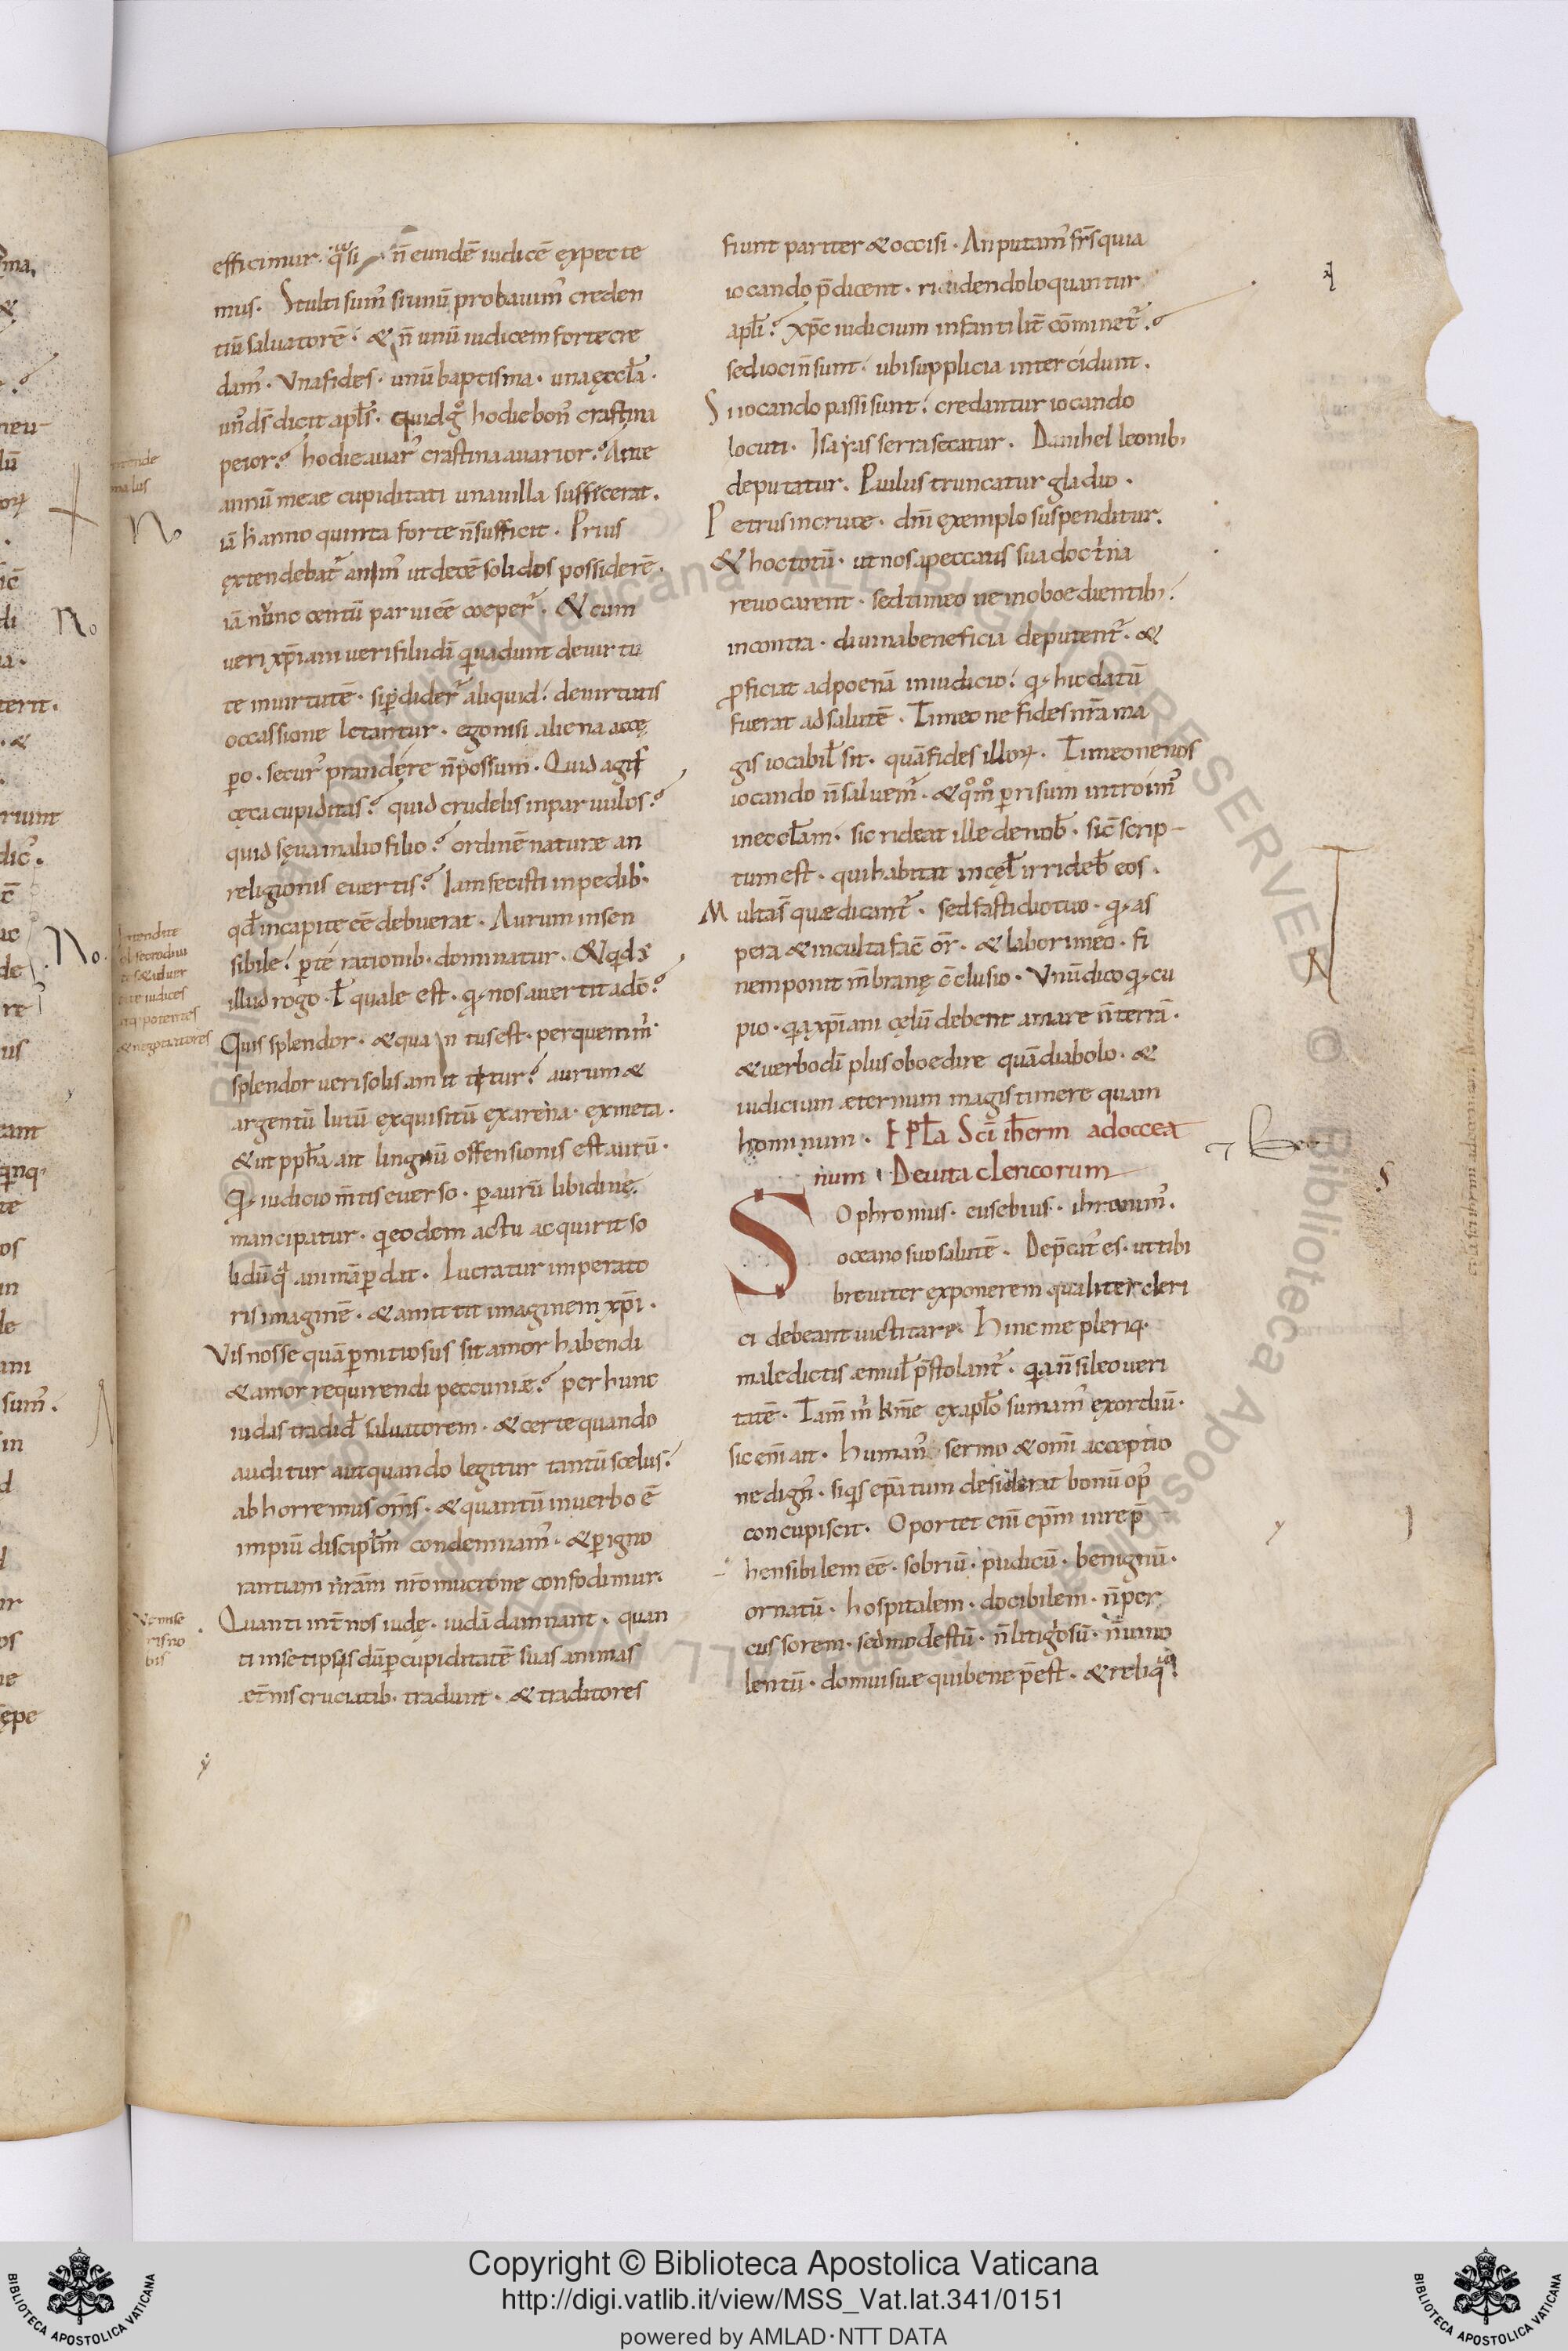 efficimur. quasi n̄ eundē iudicē ęxpecte
mus. Stulti sum' si unū probauim' creden
tiū saluatorē. & n̄ unū iudicem forte cre
dam'. Vna fides. unū baptisma. una ęccl̄a.
un' ds̄ dicit apl̄s. quid g° hodie bon' crastina
peior? hodie auar' crastina auarior? Ante
annū meae cupiditati una uilla sufficerat.
iā h anno quinta forte n̄ sufficit. Prius
ęxtendebat' anim' ut decē solidos possiderē.
iā nunc centū parui eē coeper'. & cum
ueri xp̄iani ueri filii dī qui uadunt de uirtu
te in uirtutē. si p̄dider' aliquid. de uirtutis
occassione letantur. ego nisi aliena accę
pero. secur' prandęre n̄ possum. Quid agis
cęca cupiditas? quid crudelis in paruulos?
quid sęua in alio filio? ordinē naturæ an
religionis euertis? Iam fecisti in pedib.
qd̄ in capite eē debuerat. Aurum insen
sibile. per te rationib. dominatur. & quid s
illud rogo. ł quale est. quod nos auertit a dō?
Quis splendor. & quantus est. per quem m'
splendor ueri solis amittitur? aurum &
argentū lutū ęxquisitū ęx arena. ęx meta.
& ut ppħa ait lingnū offensionis est aurū.
Quod iudicio m̄tis euerso. per aurū libidine
mancipatur. qui eodem actu acquirit so
lidū quo animā perdit. Lucratur imperato
ris imaginē. & amittit imaginem xp̄i.
Vis nosse quā pernitiosus sit amor habendi
& amor requirendi peccuniæ? per hunc
iudas tradid' saluatorem. & certe quando
auditur aut quando legitur tantū scelus.
abhorremus om̄s. & quantū in uerbo ē
impiū discipl̄m condemnam'. & per igno
rantiam nr̄am nr̄o mucrone confodimur.
Quanti int̄ nos iudę. iudā damnant. quan
ti in setipsis dū per cupiditatē suas animas
æt̄nis cruciatib. tradunt. & traditores
fiunt pariter & occisi. An putam' fr̄s quia
iocando p̄dicent. ridendo loquantur
apl̄i? xp̄c iudicium infantilit̄ cōminet'?
sed ioci n̄ sunt. ubi supplicia intercidunt.
Si iocando passi sunt. credantur iocando
locuti. Isayas serra secatur. Danihel leonib;
deputatur. Paulus truncatur gladio.
Petrus in cruce. dn̄i ęxemplo suspenditur.
& hoc totū. ut nos a peccatis sua doctrina
reuocarent. sed timeo ne inoboedientib;.
incontra. diuina beneficia deputent'. &
proficiat ad poenā in iudicio. quod hic datū
fuerat ad salutē. Timeo ne fides nr̄a ma
gis iocabil' sit. quā fides illor. Timeo ne nos
iocando n̄ saluem'. & quom° per risum introim'
in ecclam. sic rideat ille de nob'. sic scrip-
tum est. qui habitat in cęl' irrideb' eos.
Multa s̄ quæ dicant'. sed fastidio tuo. quod as
pera & inculta fac̄ or̄. & labori meo. fi
nem ponit m̄branę c̄clusio. Vnū dico quod cu
pio. quia xp̄iani cęlū debent amare n̄ terrā.
& uerbo dī plus oboedire quā diabolo. &
iudicium æternum magis timere quam
hominum. EPL̄a Sc̄i ih̄erm̄ ad occea
num De uita clericorum
Sophronius. eusebius. ihronim'.
oceano suo salutē. Dep̄cat' es. ut tibi
breuiter exponerem qualiter cleri
ci debeant uictitare. Hinc me pleriq.
maledictis æmul' p̄stolant'. quia n̄ sileo ueri
tatē. Tam̄ m̄ kme ęx apl̄o sumam' ęxordiū.
sic em̄ ait. human' sermo & om̄i acceptio
ne dign'. si quis ep̄atum desiderat bonū op'
concupiscit. Oportet em̄ ep̄m inrep̄
hensibilem eē. sobriū. pudicū. benignū.
ornatū. hospitalem. docibilem. n̄ per
cussorem. sed modestū. n̄ litigosū. n̄ uino
lentū. domui suæ qui bene p̄est. & reliqua
Copyright © Biblioteca Apostolica Vaticana
http://digi.vatlib.it/view/MSS_Vat.lat.341/0151
powered by AMLAD·NTT DATA
BIBLIOTECA APOSTOLICA VATICANA
BIBLIOTECA APOSTOLICA VATICANA